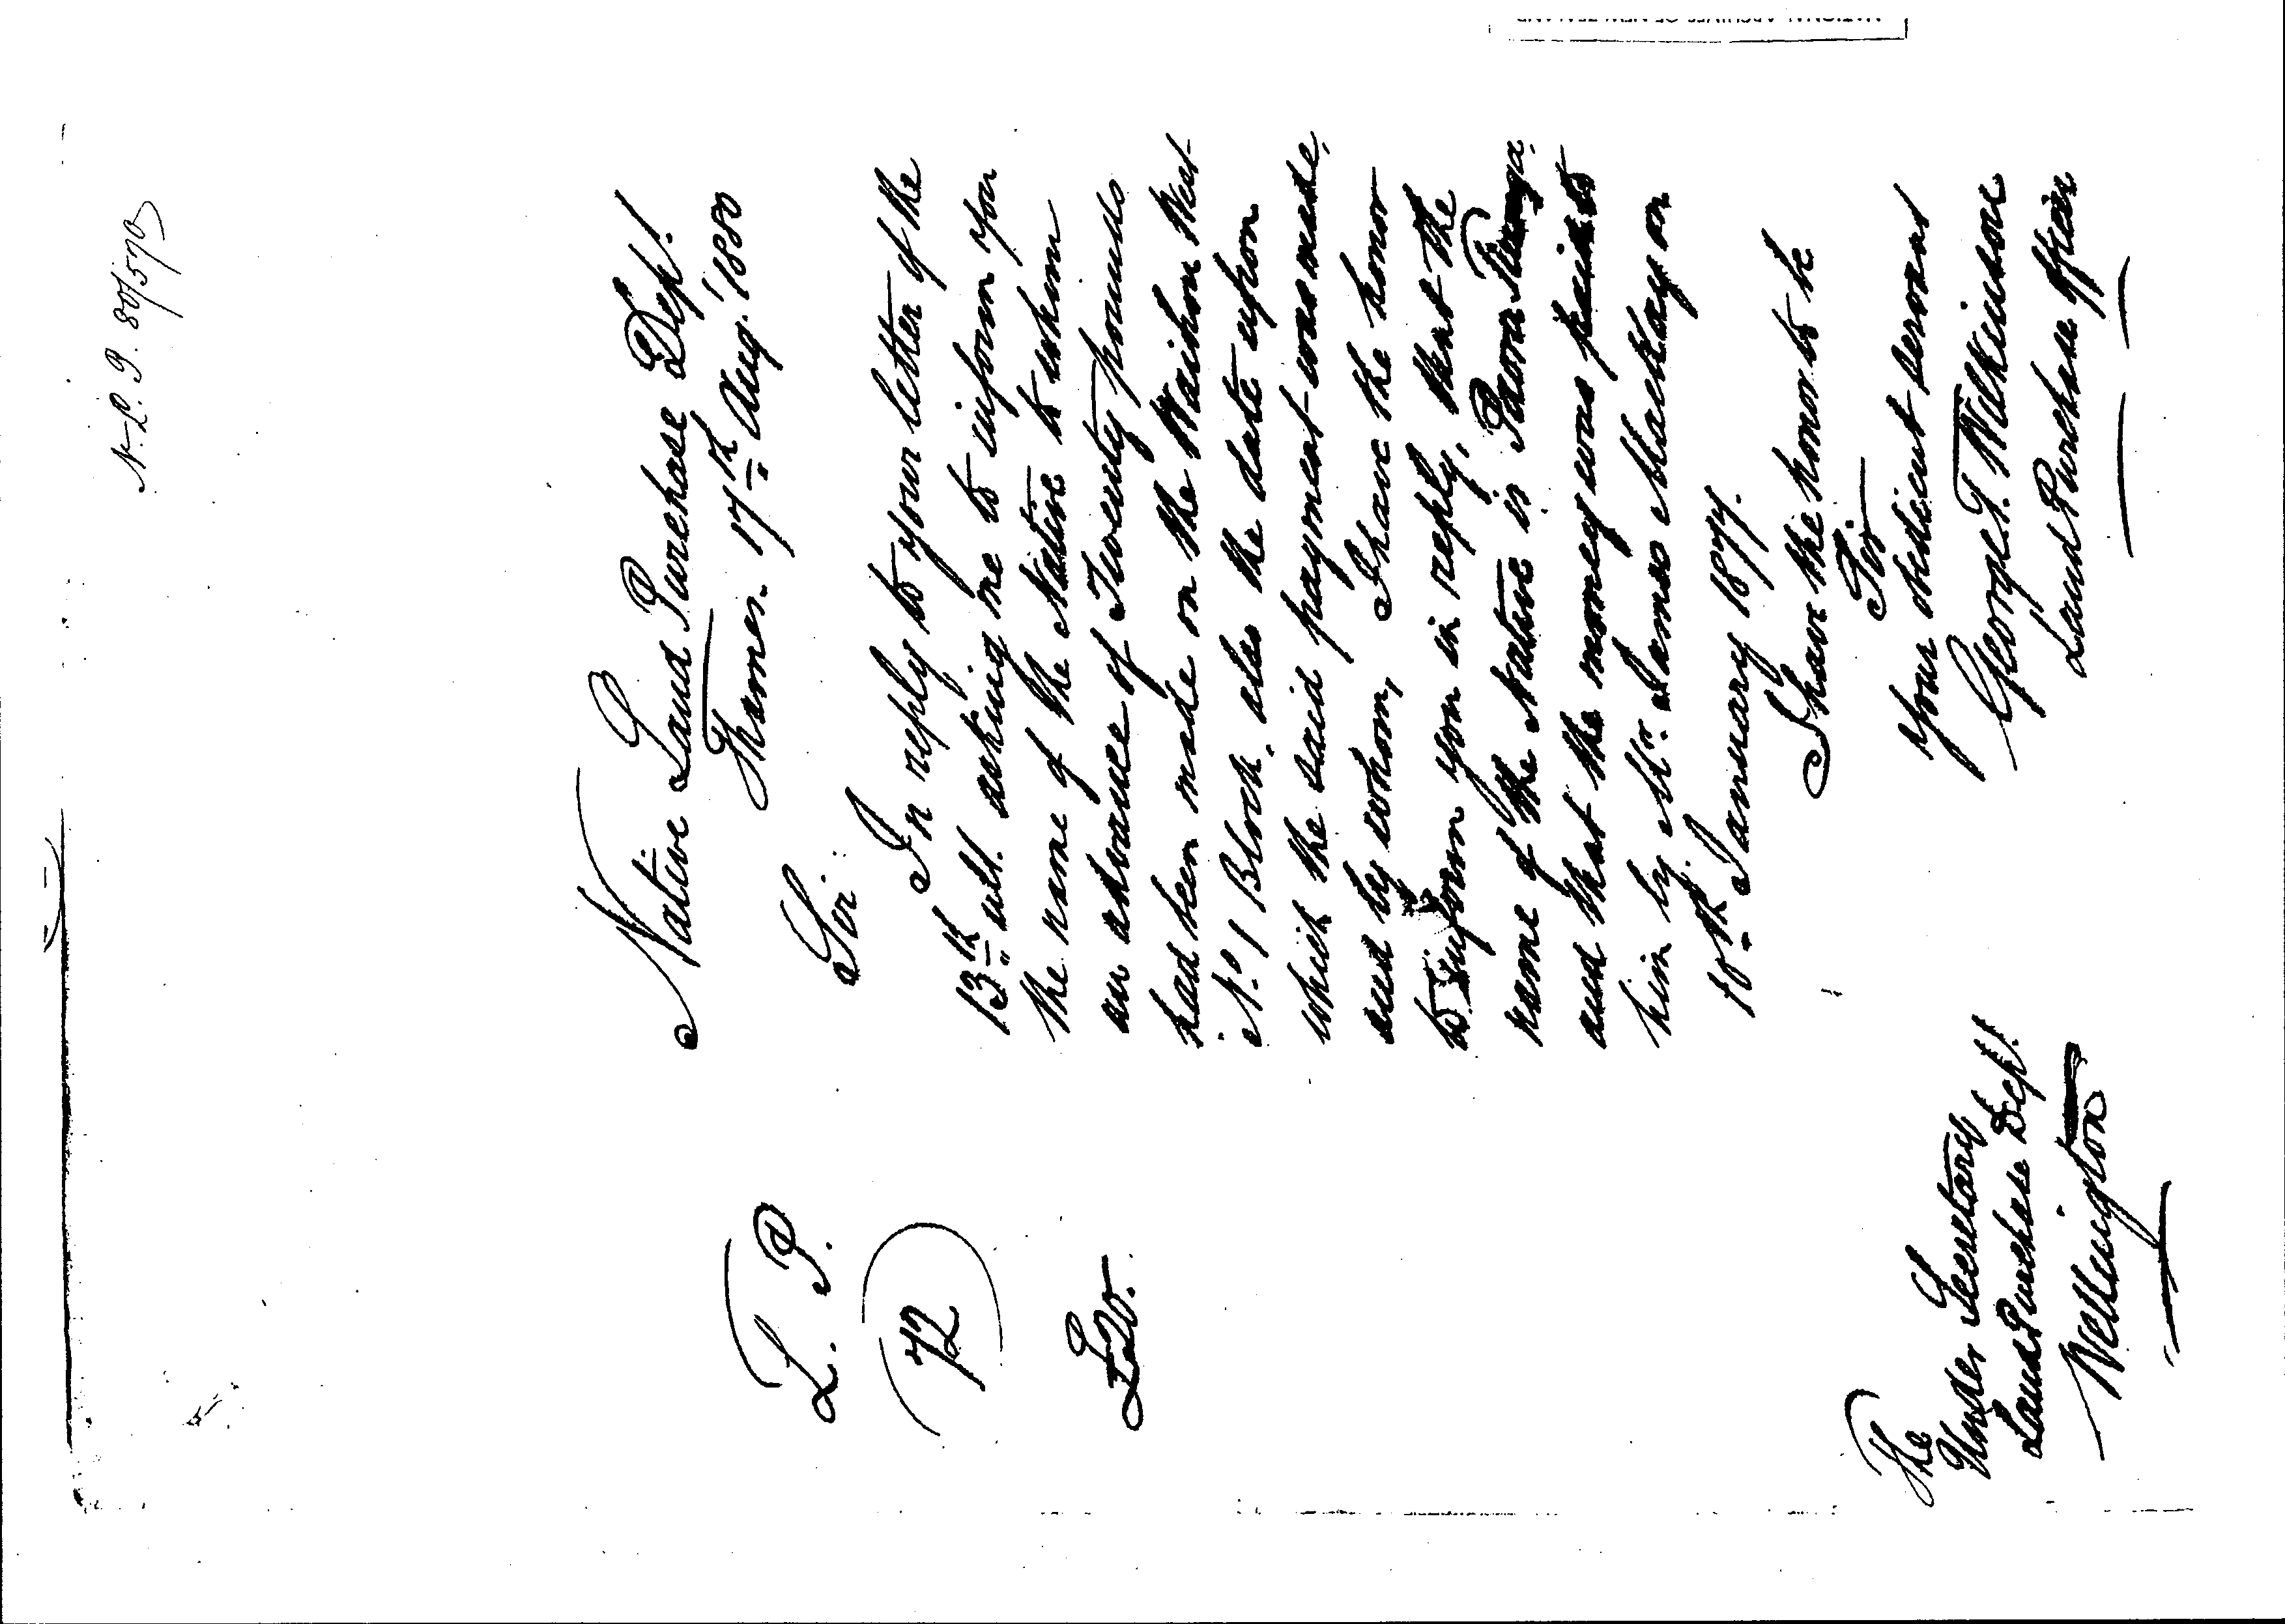 N.L.P. 80/570
Native Land Purchase Dept.
Thames. 17th Aug. 1880
L. P.
72
£20.
Sir
In reply to your letter of the
13th ult. asking me to inform you
the name of the Native to whom
an advance of Twenty pounds
had been made on the Waihou West
No. 1 Block, also the date upon
which the said payment was made,
and by whom, I have the honor
to inform you in reply, that the
name of the Native is
and that the money was paid to
him by Mr. James Mackay on
18th January 1877.
I have the honor to be
Sir
Your obedient servant
George T. Wilkinson
Land Purchase Officer
The
Under Secretary
Land Purchase Dept.
Wellington